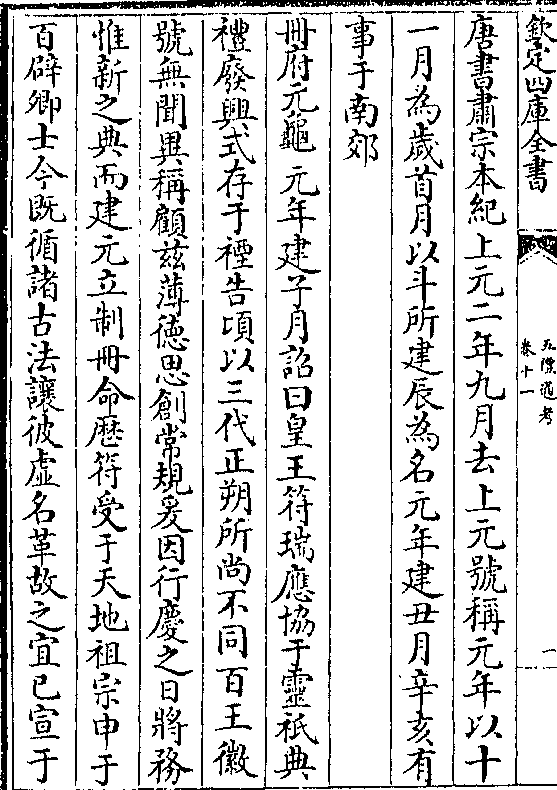 欽定四庫全書
五禮通考
卷十一
一
唐書肅宗本紀上元二年九月去上元號稱元年以十
一月為歲首月以斗所建辰為名元年建丑月辛亥有
事于南郊
冊府元龜 元年建子月詔曰皇王符瑞應協于靈祗典
禮廢興式存于禋告頃以三代正朔所尚不同百王徽
號無聞異稱顧兹薄德思創常規爰因行慶之日將務
惟新之典而建元立制冊命歴符受于天地祖宗申于
百辟卿士今既循諸古法讓彼虛名革故之宜已宣于